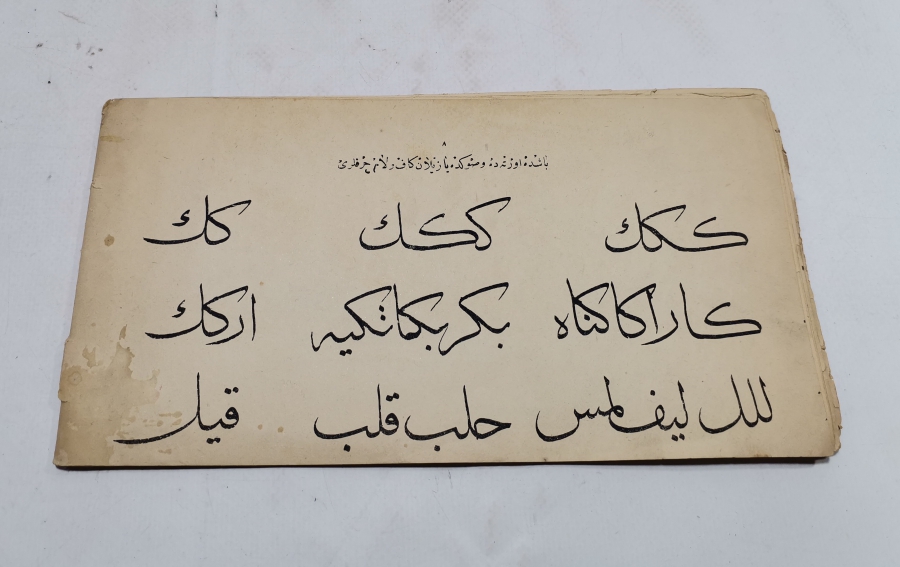 ٨
باشده اورته ده وصوكده يازيلان كاف ولام حرفلرى
ككك ككك كك
كار اكا كناه بكر بكا تكيه اركك
للل ليف لمس حلب قلب قيل